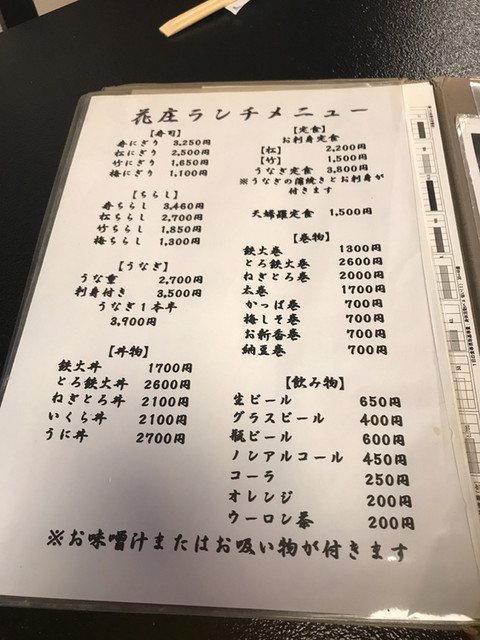 花庄ランチメニュー
【寿司】
寿にぎり 3,250円
松にぎり 2,500円
竹にぎり 1,650円
梅にぎり 1,100円
【ちらし】
寿ちらし 3,460円
松ちらし 2,700円
竹ちらし 1,850円
梅ちらし 1,300円
【うなぎ】
うな重 2,700円
刺身付き 3,500円
うなぎ1本半
3,900円
【丼物】
鉄火丼 1700円
とろ鉄火丼 2600円
ねぎとろ丼 2100円
いくら丼 2100円
うに丼 2700円
【定食】
お刺身定食
【松】 2,200円
【竹】 1,500円
うなぎ定食 3,800円
※うなぎの蒲焼きとお刺身が
付きます
天婦羅定食 1,500円
【巻物】
鉄火巻 1300円
とろ鉄火巻 2600円
ねぎとろ巻 2000円
太巻 1700円
かっぱ巻 700円
梅しそ巻 700円
お新香巻 700円
納豆巻 700円
【飲み物】
生ビール 650円
グラスビール 400円
瓶ビール 600円
ノンアルコール 450円
コーラ 250円
オレンジ 200円
ウーロン茶 200円
※お味噌汁またはお吸い物が付きます